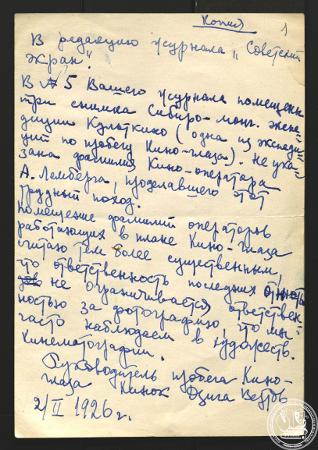 Копия
1
В редакцию журнала „Советский
экран".
В № 5 Вашего журнала помещены
три снимка Сибиро-монг. экспе-
диции Культкино (одна из экспеди-
ций по пробегу Кино-глаза). Не ука-
зана фамилия Кино-оператора
А. Лемберга, проделавшего этот
трудный поход.
Помещение фамилий операторов
работающих в плане Кино-глаза
считаю тем более существенным,
что ответственность последних отнюдь
не ограничивается ответствен-
ностью за фотографию, что мы
часто наблюдаем в художеств.
кинематографии.
Руководитель пробега Кино-
глаза Кинок Дзига Вертов
2/II 1926 г.